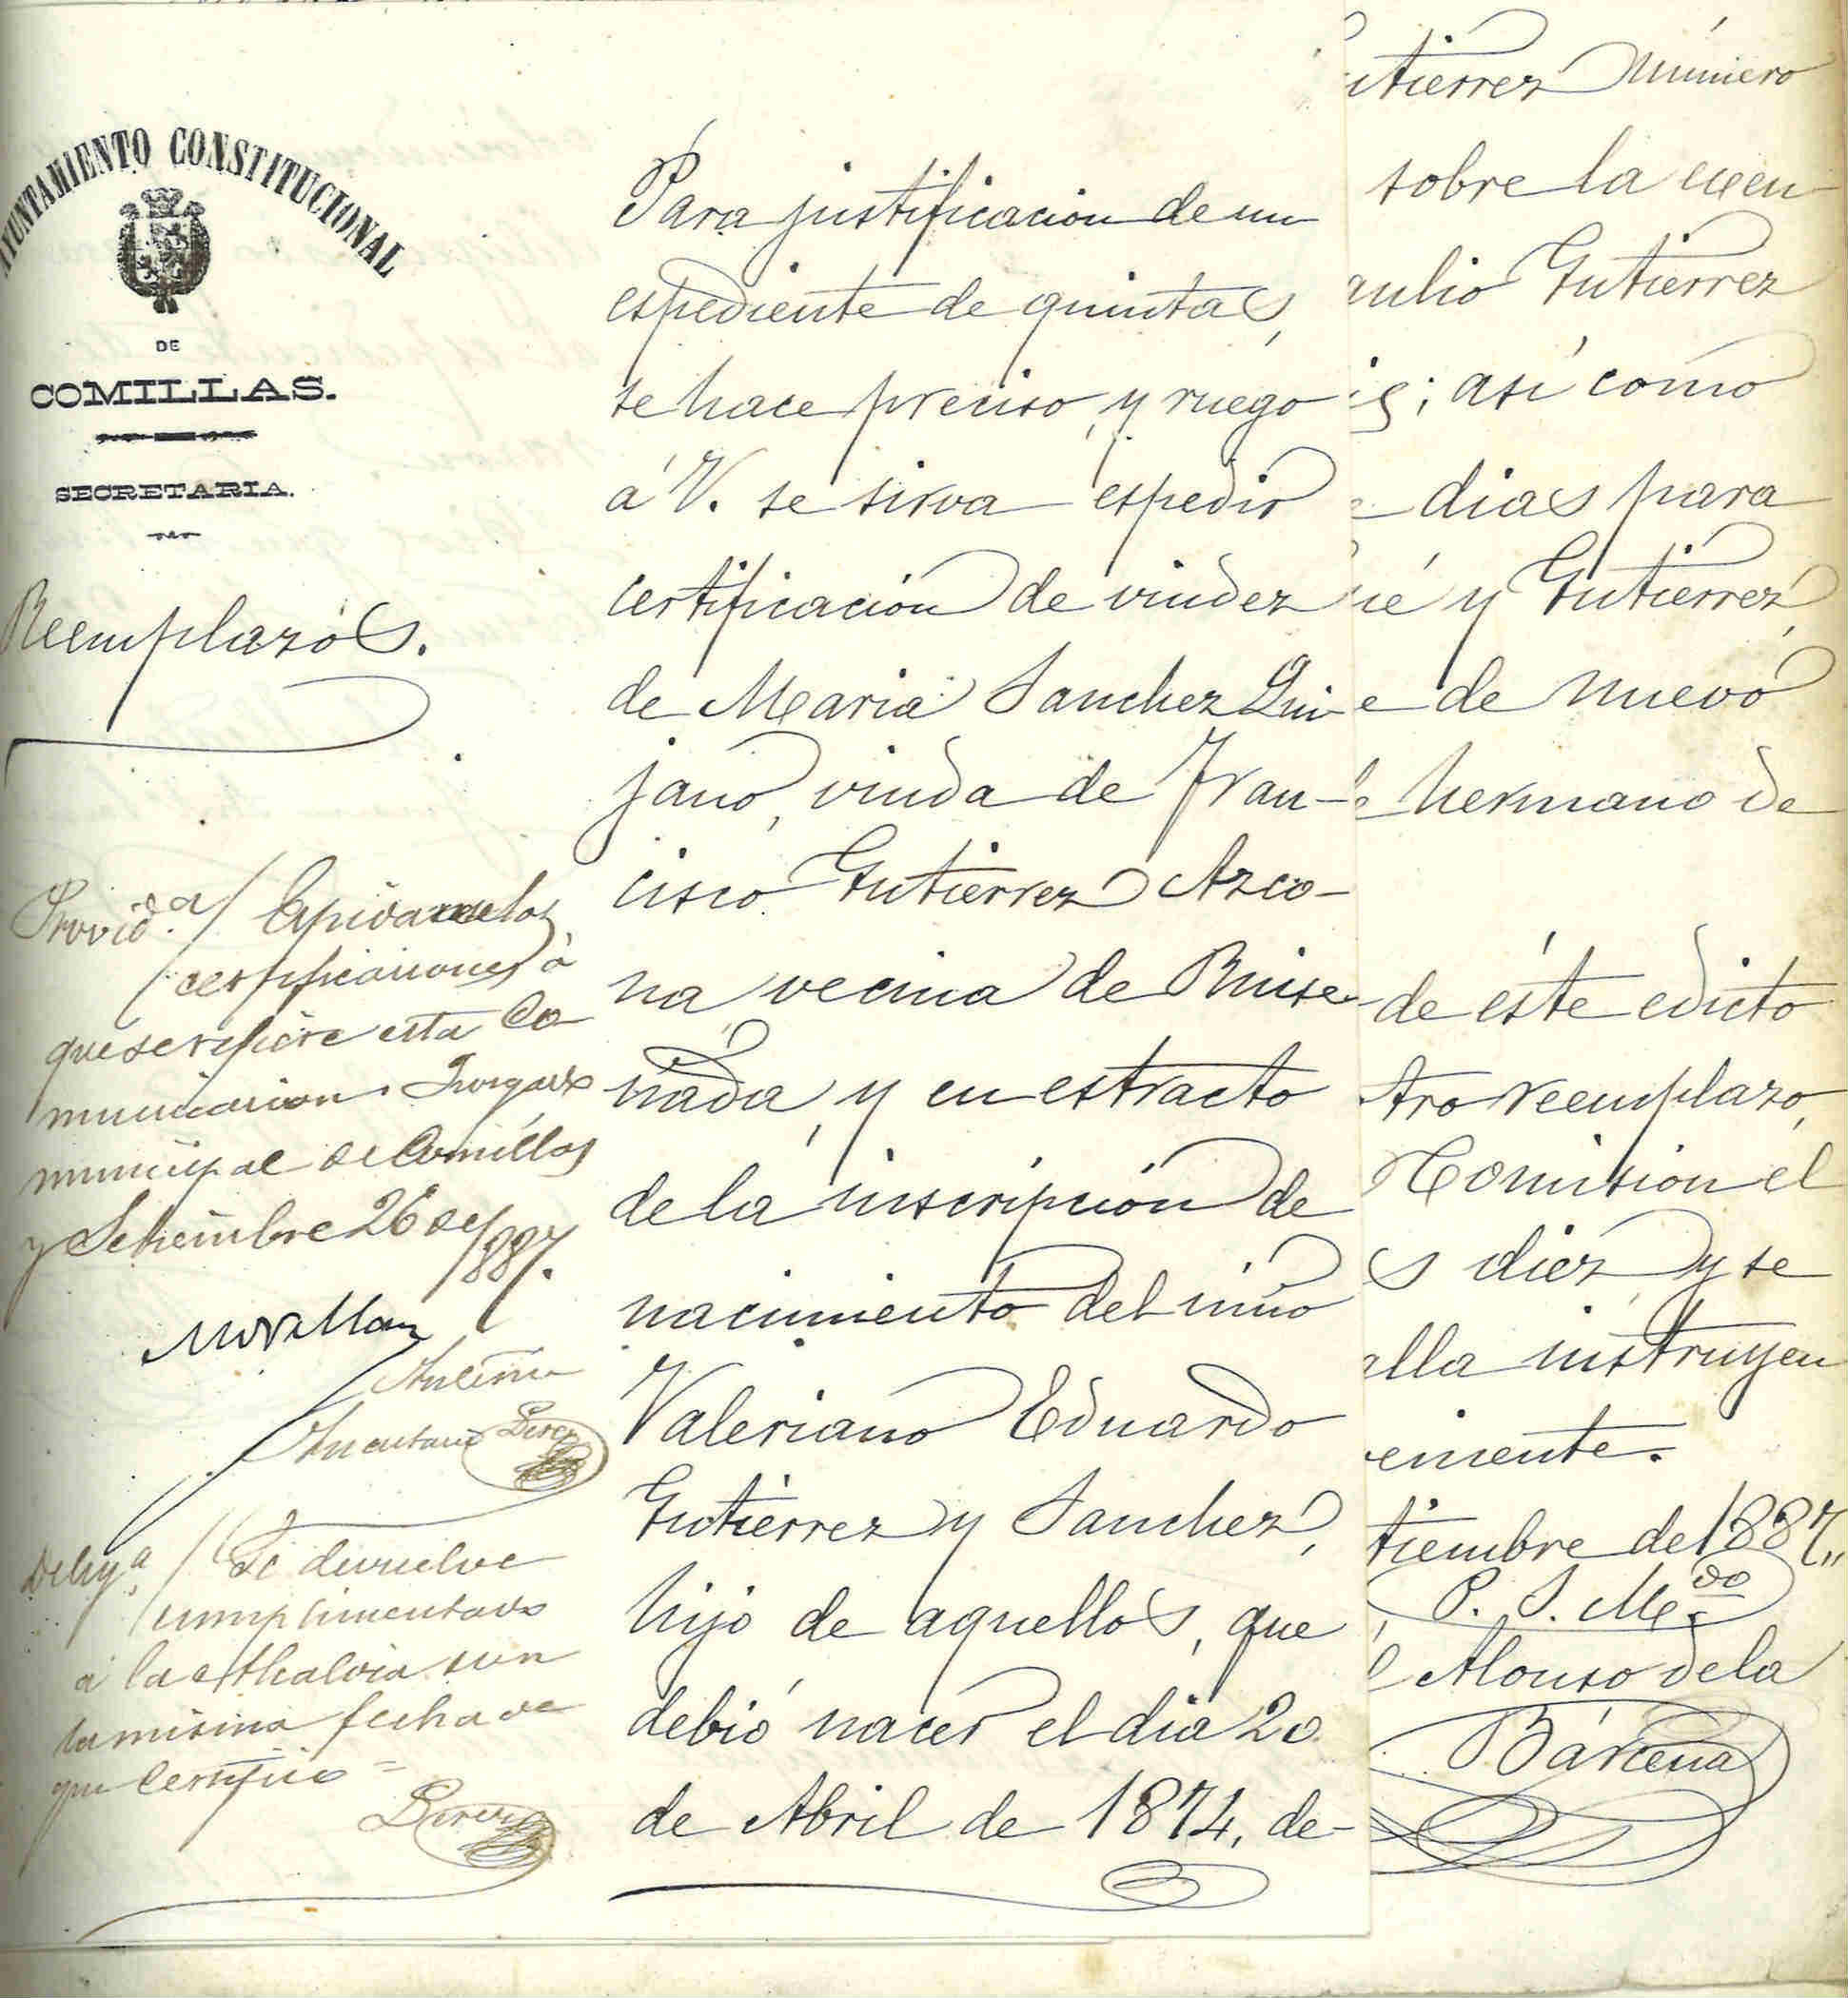 AYUNTAMIENTO CONSTITUCIONAL
DE
COMILLAS.
SECRETARIA.
Reemplazos.
Provid.a/ Espidanse las
certificaciones á
que se refiere esta Co-
municacion. Juzgado
municipal de Comillas
y Setiembre 26 de
1887.
Ante mi
Perez
Delig.a / Se devuelve
cumplimentado
á la Alcaldia con
la misma fecha de
que Certifico =
Perez
Para justificación de un
espediente de quintas,
se hace preciso, y ruego
á V. se sirva espedir
certificación de viudez
de Maria Sanchez Qui-
jano, viuda de Fran-
cisco Gutiérrez Azco-
na, vecina de Ruise-
ñada, y en estracto
de la inscripción de
nacimiento del niño
Valeriano Eduardo
Gutiérrez y Sanchez,
hijo de aquellos, que
debió nacer el dia 20
de Abril de 1874, de-
utierrez número
sobre la exen-
aulio Gutierrez
; así como
dias para
é y Gutierrez,
e de nuevo
hermano de
de éste edicto
tro reemplazo,
Comision el
s diez, y se
alla instruyen
emente.
tiembre de 1887,,
P. S. M.do
Alonso de la
Bárcena